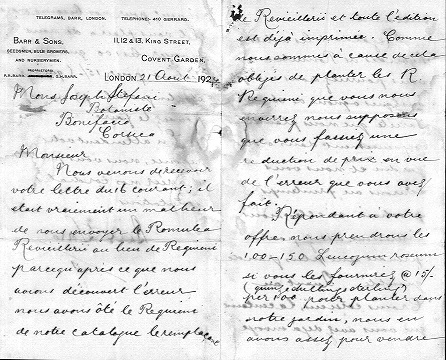 TELEGRAMS, BARR, LONDON. TELEPHONE: 410 GERRARD.
BARR & SONS,
SEEDSMEN, BULB GROWERS,
AND NURSERYMEN.
PROPRIETORS
P.R. BARR. G.H. BARR.
11, 12 & 13, KING STREET,
COVENT GARDEN,
LONDON 21 Août 192
Mons Joseph Stefani
Botaniste
Bonifacio
Corsica
Monsieur
Nous venons de recevoir
votre lettre du 16 courant; il
était vraiement un malheur
de nous envoyer le Romulea
Revieillerii au lieu de Requieni
parceque après ce que nous
avions découvert l'erreur
nous avons ôté le Requieni
de notre catalogue le remplaçant
de Revieillerii et toute l'edition
est déjà imprimée. Comme
nous sommes à cause de cela
obligés de planter les R
Requieni que vous nous
enverrez nous supposons
que vous fassez une
reduction de prix en vue
de l'erreur que vous avez
fait.
Répondant à votre
offre nous prendrons les
100-150 Leucojum roseum
si vous les fournirez @ 15/-
(quinze shillings sterling)
per 100 pour planter dans
notre jardin, nous en
avons assez pour vendre